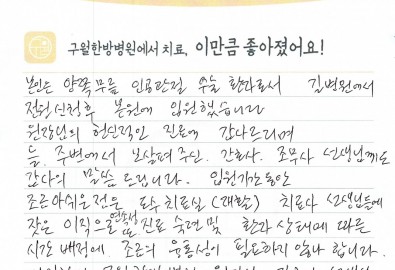 구월한방병원에서 치료, 이만큼 좋아졌어요!
본인은 양쪽무릎 인공관절 수술 환자로서 김병원에서
전원신청후 본원에 입원했습니다
원장님의 헌신적인 진료에 감사드리며
늘. 주변에서 보살펴주신. 간호사. 조무사 선생님께도
감사의 말씀 드립니다. 입원기간동안
조금아쉬운점은 도수치료실 (재활) 치료사 선생님들에
잦은 이직으로 연속성 및 진료 숙련 및 환자상태에 따른
시간 배정에 조금의 융통성이 필요하지 않나 합니다.